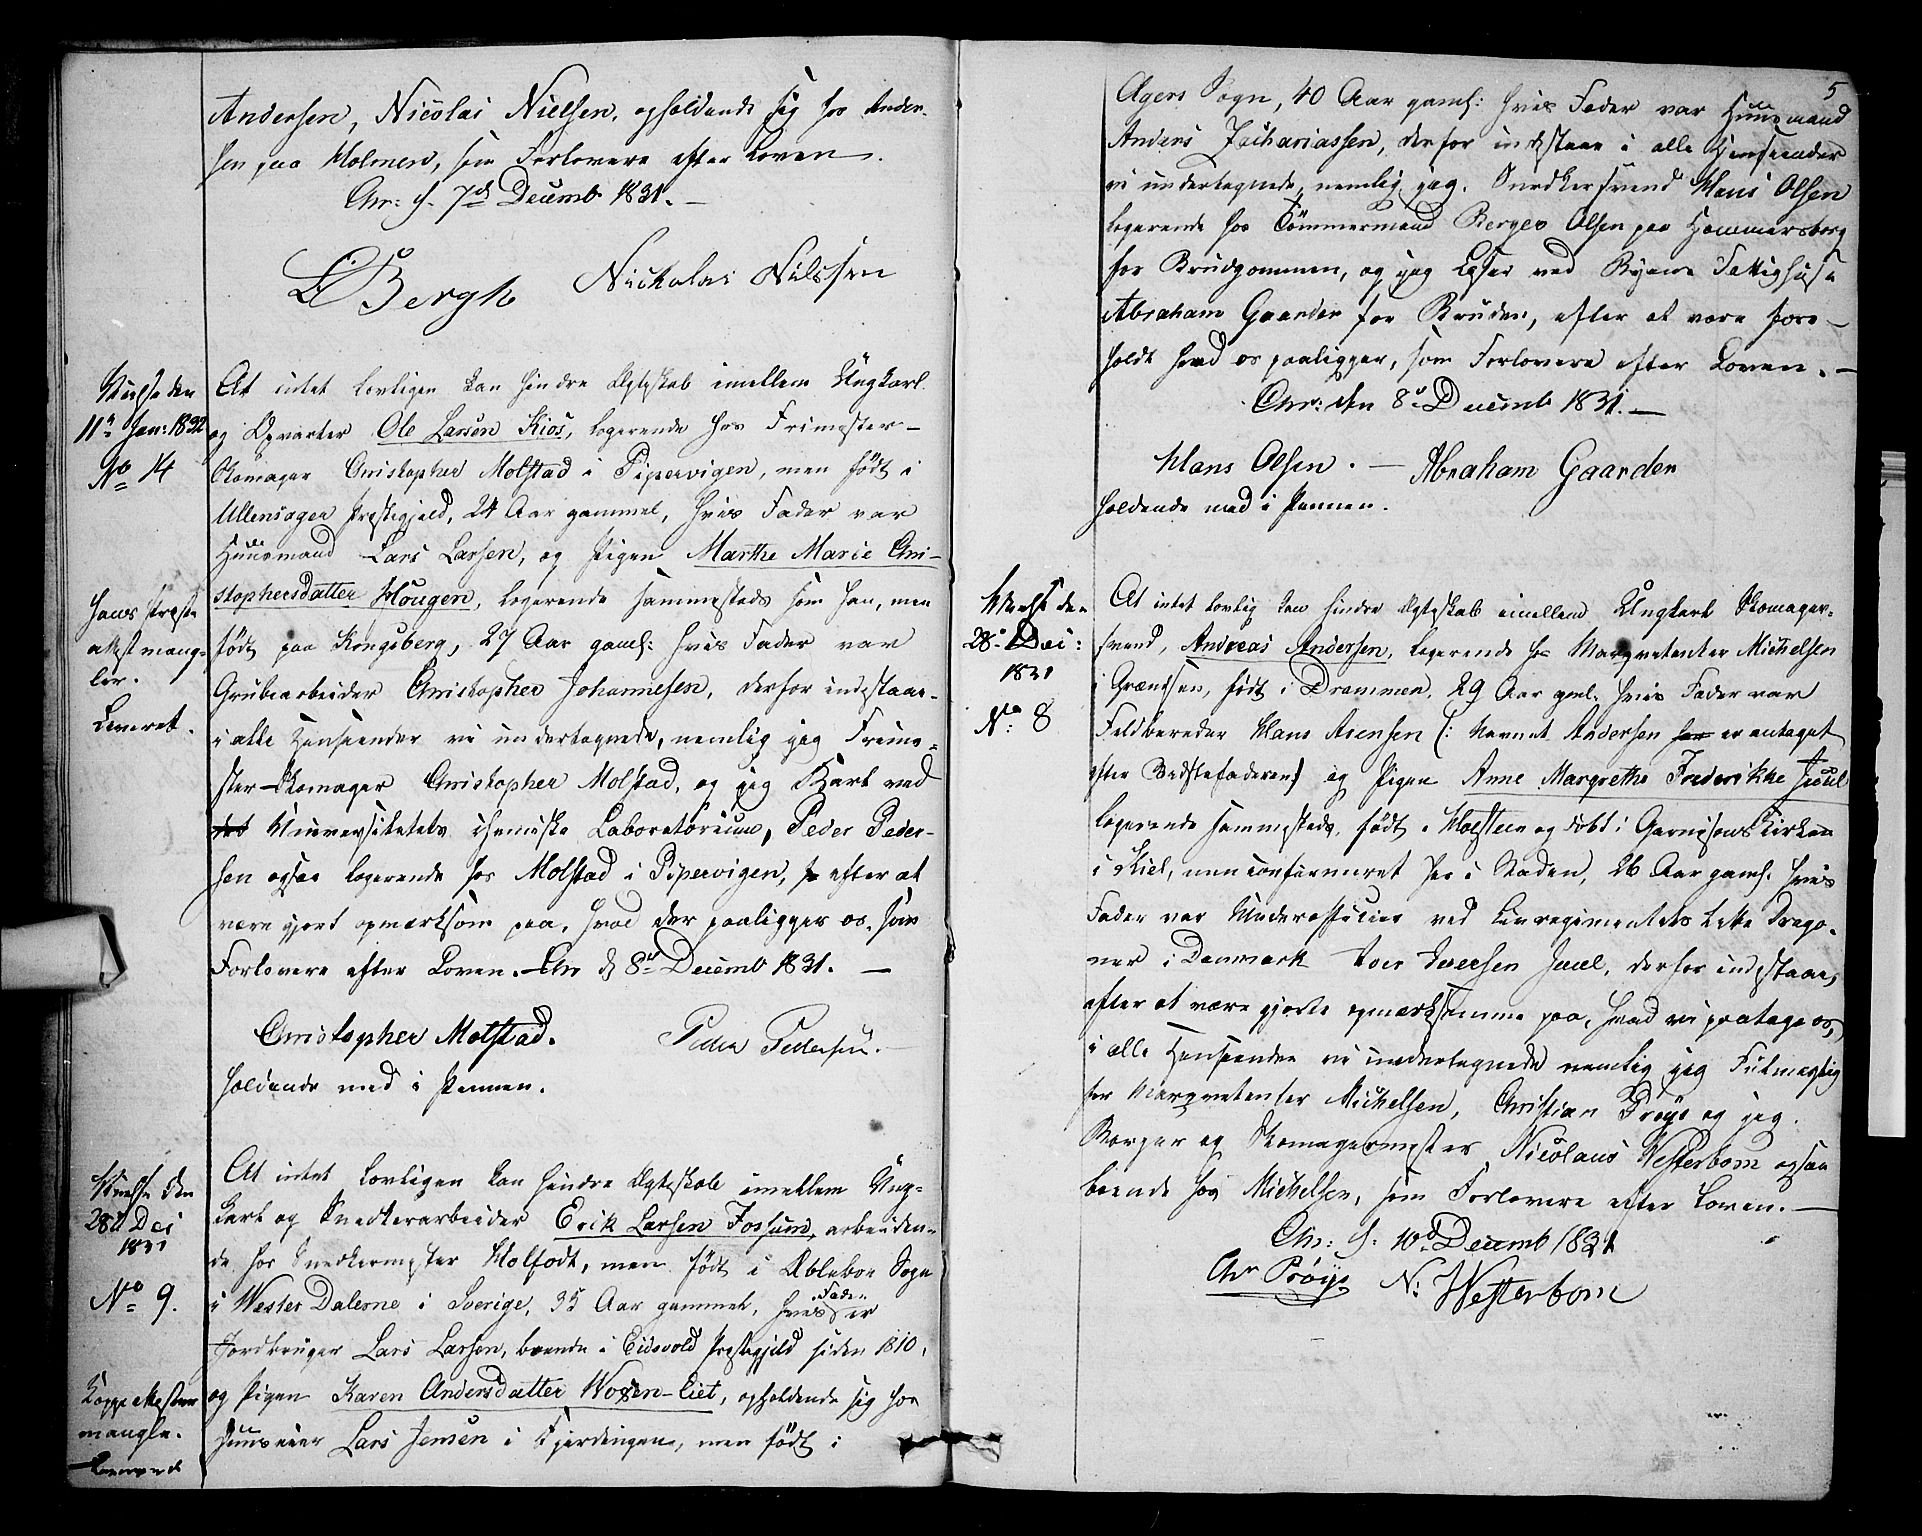 Andersen, Nicolai Nielsen, opholdende sig hos Ander-
sen paa Holmen, som Forlovere efter Loven.
Chr: d. 7d Decemb 1831. —
L Bergh Nickolai Nilssen
Viede den
11te Jan: 1832
No 14
At intet lovligen kan hindre Ægteskab imellem Ungkarl
og Opvarter Ole Larsen Kios, logerende hos Frimester-
Skomager Christopher Molstad i Pipervigen, men født i
Ullensager Præstegjeld, 24 Aar gammel, hvis Fader var
Huusmand Lars Larsen, og Pigen Marthe Marie Chri-
stophersdatter Hougen, logerende sammesteds som han, men
født paa Kongsberg, 27 Aar gaml: hvis Fader var
Grubearbeider Christopher Johannesen, derfor indestaae
i alle Henseender vi undertegnede, nemlig jeg Frime-
ster-Skomager Christopher Molstad, og jeg Karl ved
det Universitetets chemiske Laboratorium, Peder Peder-
sen ogsaa logerende hos Molstad i Pipervigen, efter at
være gjort opmærksom paa, hvad der paaligger os, som
Forlovere efter Loven. Chr d 8de Decemb 1831. —
hans Præste
attest mang-
ler.
Leveret.
Christopher Molstad. Peder Pedersen.
holdende med i Pennen.
Viede den
28d Dec
1831
No 9.
At intet lovligen kan hindre Ægteskab imellem Ung-
karl og Snedkerarbeider Erik Larsen Fossum, arbeiden-
de hos Snedkermester Holfodt, men født i Sogn
i Wester Dalerne i Sverige, 35 Aar gammel, hvis Fader er
Jordbruger Lars Larsen, boende i Eidsvold Præstegjeld siden 1810,
og Pigen Karen Andersdatter Woxen-Eiet, opholdende sig hos
Huuseier Lars Jensen i Fjerdingen, men født i
Koppeattesterne
mangle.
Leverede
5
Agers Sogn, 40 Aar gaml: hvis Fader var Huusmand
Anders Zachariassen, derfor indestaae i alle Henseender
vi undertegnede, nemlig jeg Snedkersvend Hans Olsen
logerende hos Tømmermand Berger Olsen paa Hammersborg
for Brudgommen, og jeg ved Byens Fattighuse
Abraham Gaarder for Bruden, efter at være fore-
holdt hvad os paaligger, som Forlovere efter Loven. —
Chr: den 8de Decemb 1831. —
Hans Olsen. — Abraham Gaarder
holdende med i Pennen.
Viede den
28de Dec:
1831
No: 8
At intet lovlig kan hindre Ægteskab imellem Ungkarl Skomager-
svend, Andreas Andersen, logerende hos Marqvetenter Michelsen
i Grændsen, født i Drammen, 29 Aar gml: hvis Fader var
Feldbereder Hans Arensen (: Navnet Andersen er antaget
efter Bedstefaderen) og Pigen Anne Margrethe Frederikke Juul
logerende sammesteds, født i Holsteen og døbt i Garnisons Kirken
i Kiel, men confirmeret her i Staden, 26 Aar gaml. hvis
Fader var Underofficier ved Livregimentets lette Drago-
ner i Danmark Iver Iversen Juul, derfor indestaae,
efter at være gjorte opmærksomme paa, hvad vi paatage os,
i alle Henseender vi undertegnede nemlig jeg Fuldmægtig
for Marqvetenter Michelsen, Christian Prøys og jeg
Borger og Skomagermester Nicolaus Westerbom ogsaa
boende hos Michelsen, som Forlovere efter Loven. —
Chr: d. 10d Decemb 1831
Chr Prøys N: Westerbom